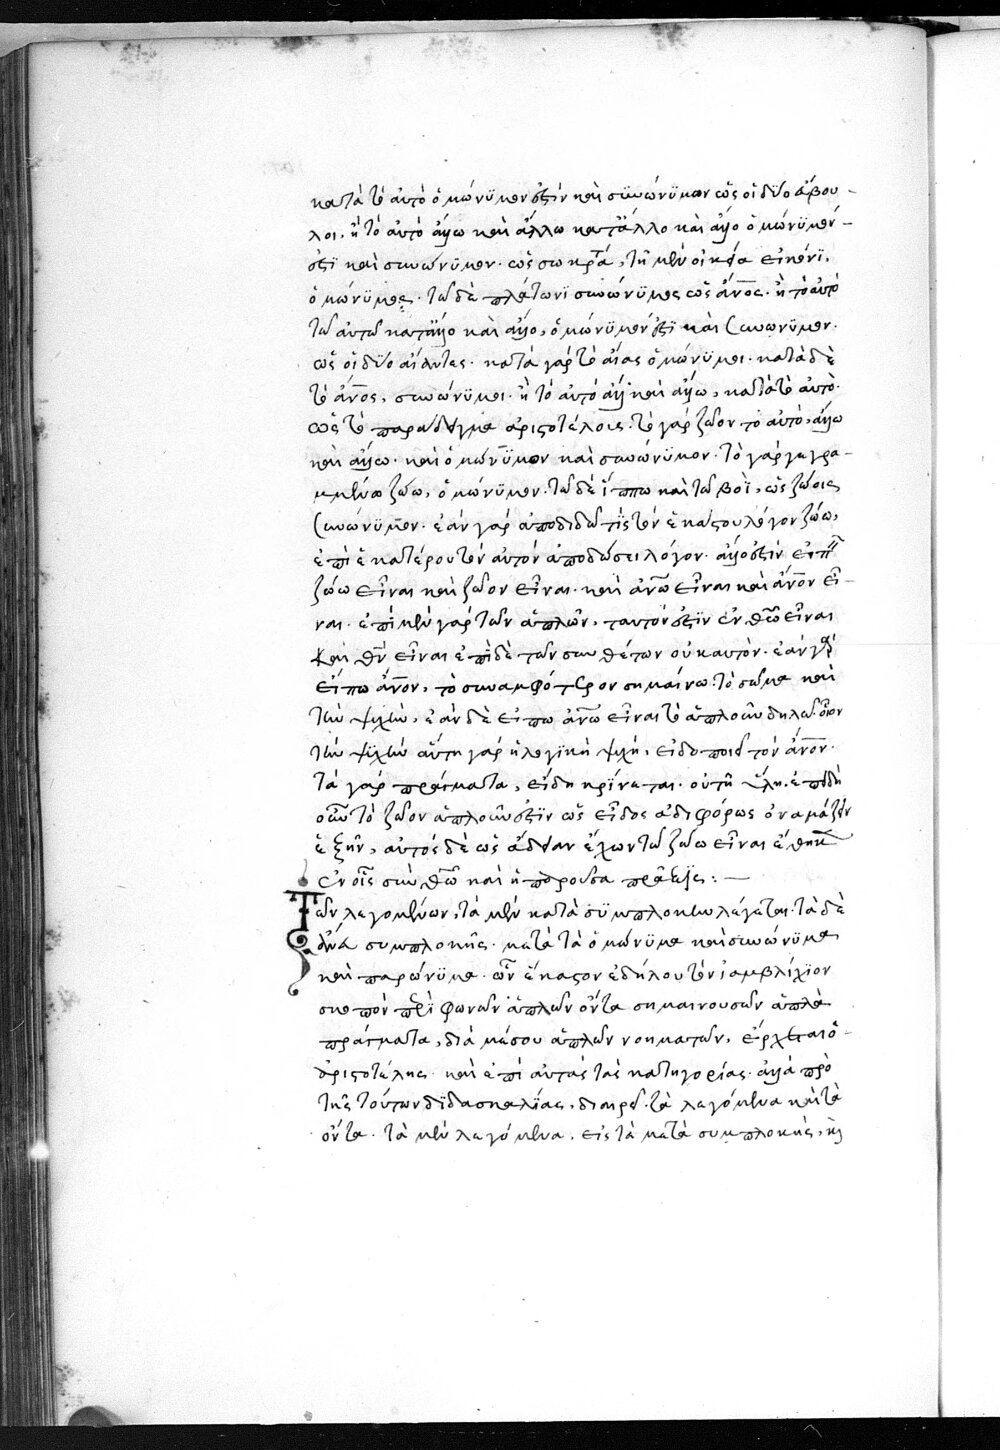 κατὰ τὸ αὐτὸ ὁμώνυμον ἐστὶν καὶ συνώνυμον ὡς οἱ δύο ἄβου-
λοι. ἢ τὸ αὐτὸ ἄλλω καὶ ἄλλω κατ' ἄλλο καὶ ἄλλο ὁμώνυμόν
ἐστι καὶ συνώνυμον. ὡς σωκράτ, τῆ μὲν οἰκεία εἰκόνι,
ὁμώνυμος. τῶ δὲ πλάτωνι συνώνυμος ὡς ἄνος. ἢ τὸ αὐτὸ
τῶ αὐτῶ κατ' ἄλλο καὶ ἄλλο, ὁμώνυμόν ἐστι καὶ συνώνυμον.
ὡς οἱ δύο αἴαντες. κατὰ γὰρ τὸ αἴας ὁμώνυμοι. κατὰ δὲ
τὸ ἄνος, συνώνυμοι. ἢ τὸ αὐτὸ ἄλλ καὶ ἄλλω, κατὰ τὸ αὐτὸ.
ὡς τὸ παράδειγμα ἀριστοτέλους. τὸ γὰρ ζῶον τὸ αὐτὸ, ἄλλω
καὶ ἄλλω. καὶ ὁμώνυμον καὶ συνώνυμον. τὸ γὰρ γεγρα-
μμένω ζώω, ὁμώνυμον. τῶ δὲ ἵππω καὶ τῶ βοῒ, ὡς ζώοις
συνώνυμον. ἐὰν γὰρ ἀποδιδῶ τίς τὸν ἑκάστου λόγον ζώω,
ἐπὶ ἑκατέρου τὸν αὐτὸν ἀποδώσει λόγον. ἄλλο ἐστὶν εἰπεῖν
ζώω εἶναι καὶ ζῶον εἶναι. καὶ ἀνω εἶναι καὶ ἄνον εἶ-
ναι. ἐπὶ μὲν γὰρ τῶν ἁπλῶν, ταυτόν ἐστιν ἐν θεῶ εἶναι
καὶ θν εἶναι ἐπὶ δὲ τῶν συνθέτων οὐκ αυτὸν. ἐὰν γὰρ
εἴπω ἄνον, τὸ συναμφότερον σημαίνω. τὸ σῶμα καὶ
τὴν ψυχὴν, ἐὰν δὲ εἴπω ἀνω εἶναι τὸ ἁπλοῦν δηλῶ. οἷον
τὴν ψυχὴν αὕτη γὰρ ἡ λογικὴ ψυχή, εἰδοποιεῖ τὸν ἄνον.
τὰ γὰρ πράγματα, εἴδη κρίνεται. οὐ τῆ ὕλη. ἐπειδὴ
οὖν τὸ ζῶον ἁπλοῦν ἐστὶν ὡς εἶδος ἀδιαφόρως ὀνομάζειν
ἐξῆν, αὐτὸς δὲ ὡς ἄδειαν ἔχων τῶ ζώω εἶναι ἐ
ἐν οἷς σὺν θεῶ καὶ ἡ παροῦσα πρᾶξις: —
Τῶν λεγομένων, τὰ μὲν κατὰ συμπλοκὴν λέγεται. τὰ δὲ
ἄνευ συμπλοκῆς. μετὰ τὰ ὁμώνυμα καὶ συνώνυμα
καὶ παρώνυμα. ὧν ἕκαστον ἐδήλου τὸν ἰαμβλίχιον
σκοπὸν περὶ φωνῶν ἁπλῶν ὄντα σημαινουσῶν ἁπλὰ
πράγματα, διὰ μέσου ἁπλῶν νοημάτων, ἔρχεται ὁ
ἀριστοτέλης καὶ ἐπὶ αὐτὰς τὰς κατηγορίας. ἀλλὰ πρὸ
τῆς τούτων διδασκαλίας, διαιρεῖ τὰ λεγόμενα καὶ τὰ
ὄντα. τὰ μὲν λεγόμενα, εἰς τὰ μετὰ συμπλοκῆς, καὶ